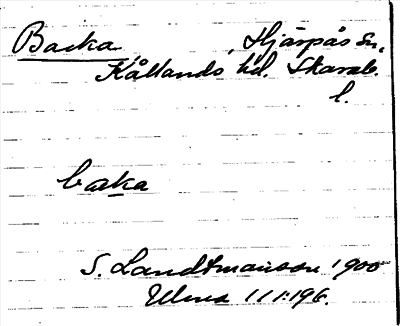 Backa, Hjärpås sn,
Kållands hd. Skarab.
l.
backa
S. Landtmanson 1900
Ulma 111:196.